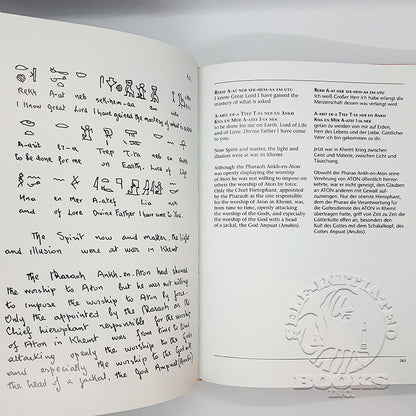 Rekh A-at neb sek-hem-aa em
I know Great Lord I have gained the mastery of what is asked
A-arit er-a Tiep T-ta neb en ankh
to be done for me on Earth, Lord of Life
Hna en Mer A-atef I-a nek
and of Love Divine Father I have come to You.
The Spirit now and matter, the light
and illusion were at war in Khemt
The Pharaoh Ankh-en-Aton had showed
the worship to Aton but he was not willing
to impose the worship to Aton by force.
Only the appointed by the Pharaoh as the
Chief hierophant responsible for the worship
of Aton in Khemt was from time to time
attacking openly the worship to the Gods
and especially the worship to the God with
the head of a jackal, the God Ampuat (Anubis)
Rekh A-at neb ser-hem-aa em utu
I know Great Lord I have gained the mastery
of what is asked
A-arit er-a Ttep T-ta neb en Ankh
Hna en Mer A-atef I-ia nek
to be done for me on Earth, Lord of Life
and of Love. Divine Father I have come to
you.
Now Spirit and matter, the light and
illusion were at war in Khemt.
Although the Pharaoh Ankh-en-Aton was
openly displaying the worship
of Aton he was not willing to impose on
others the worship of Aton by force
Only the Chief Hierophant, appointed
by the Pharaoh as the one responsible for
the worship of Aton in Khemt, was,
from time to time, openly attacking
the worship of the Gods, and especially
the worship of the God with a head of
a jackal, the God Ampuat (Anubis).
Rekh A-at neb ser-hem-aa em utu
Ich weiß Großer Herr ich habe erlangt die
Meisterschaft dessen was verlangt wird
A-arit er-a Ttep T-ta neb en Ankh
Hna en Mer A-atef I-ia nek
getan zu werden von mir auf Erden,
Herr des Lebens und der Liebe. Göttlicher
Vater ich bin gekommen zu dir.
Jetzt war in Khemt Krieg zwischen
Geist und Materie, zwischen Licht und
Täuschung.
Obwohl der Pharao Ankh-en-Aton seine
Verehrung von ATON öffentlich hervor-
kehrte, war er nicht geneigt, den Glauben
an ATON anderen mit Gewalt
aufzuzwingen. Nur der Hierophant,
dem der Pharao die Verantwortung für
die Gottesdienste des ATON in Khemt
übertragen hatte, griff von Zeit zu Zeit die
Götterkulte offen an, besonders den
Kult des Gottes mit dem Schakalkopf, des
Gottes Anpuat (Anubis).
265
BOOKS
INC.